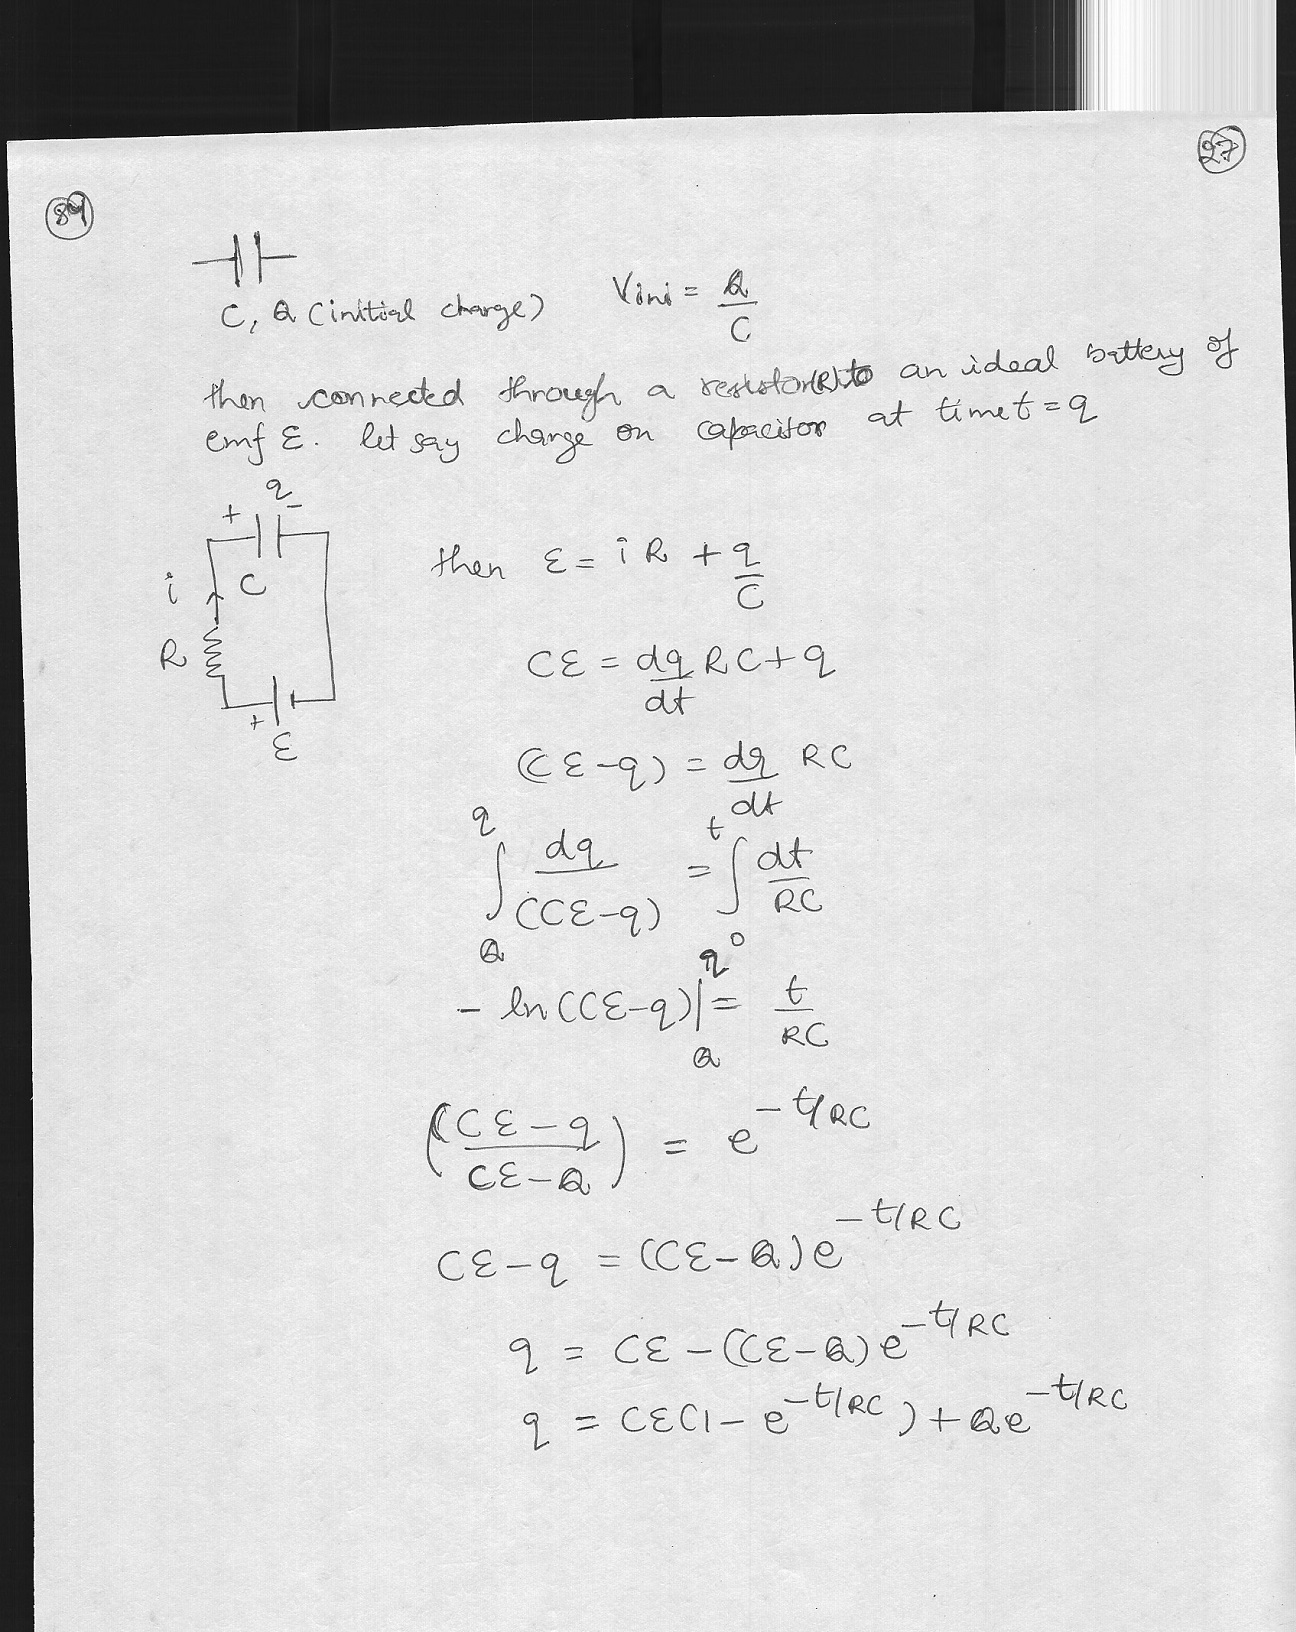 27
84
C, Q (initial charge) Vini = Q/C
then connected through a resistor(R) to an ideal battery of
emf ε. let say charge on capacitor at time t = q
q
+ -
i C
R
+
ε
then ε = iR + q/C
Cε = dq/dt RC + q
(Cε-q) = dq/dt RC
∫_Q^q dq/(Cε-q) = ∫_0^t dt/RC
- ln(Cε-q)|_Q^q = t/RC
((Cε-q)/(Cε-Q)) = e^(-t/RC)
Cε-q = (Cε-Q)e^(-t/RC)
q = Cε-(Cε-Q)e^(-t/RC)
q = Cε(1-e^(-t/RC)) + Qe^(-t/RC)